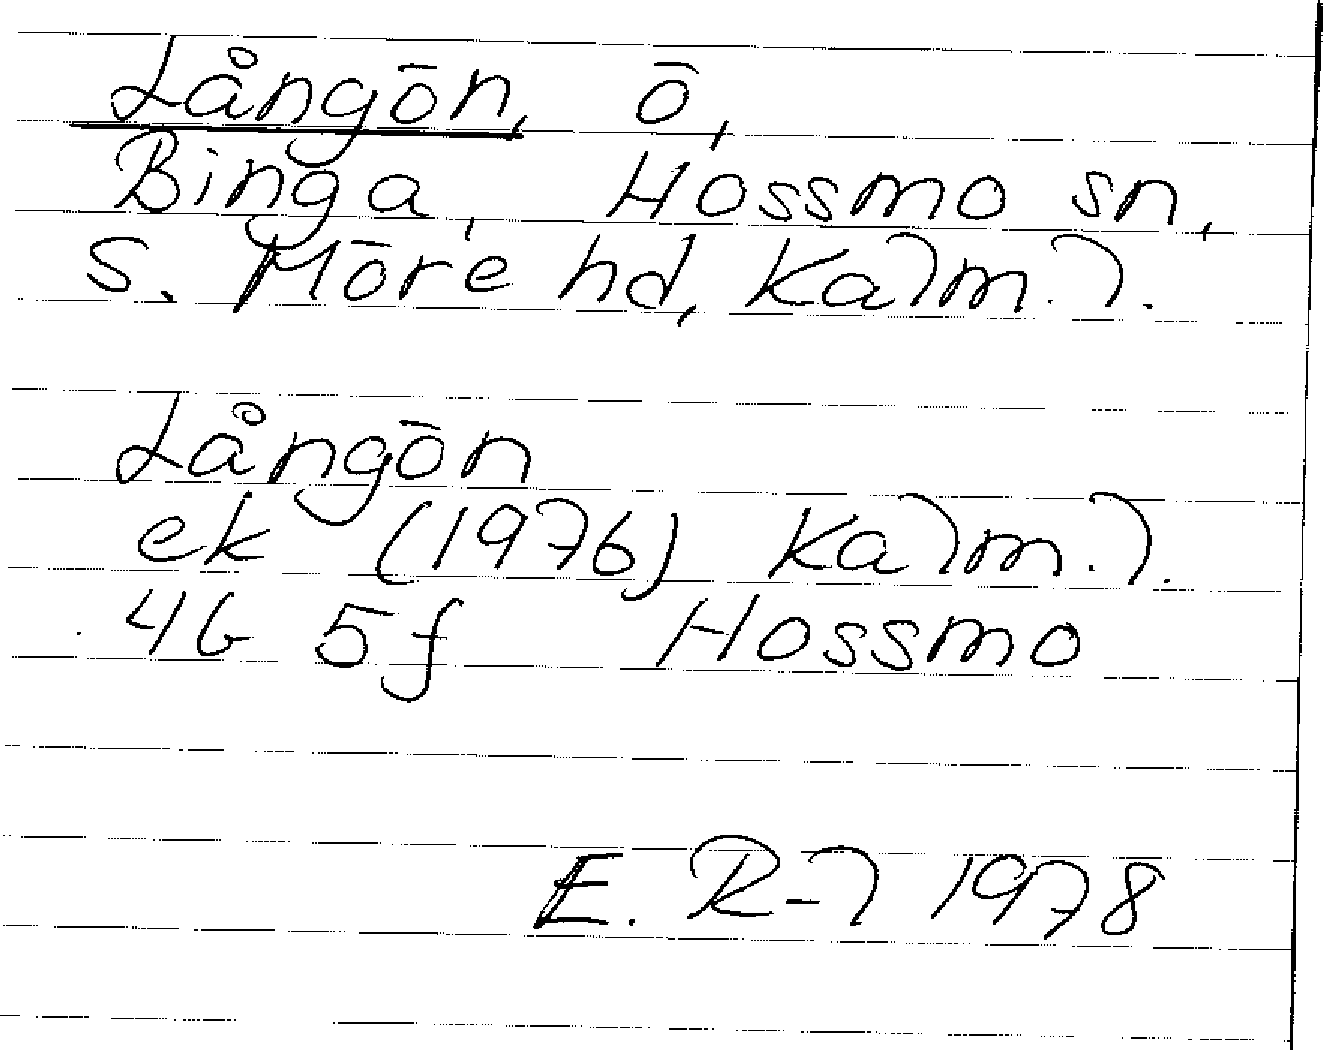 Långön, ö,
Binga, Hossmo sn,
S. Möre hd, Kalm. l.
Långön
ek (1976) Kalm. l.
4G 5f Hossmo
E. R-l 1978